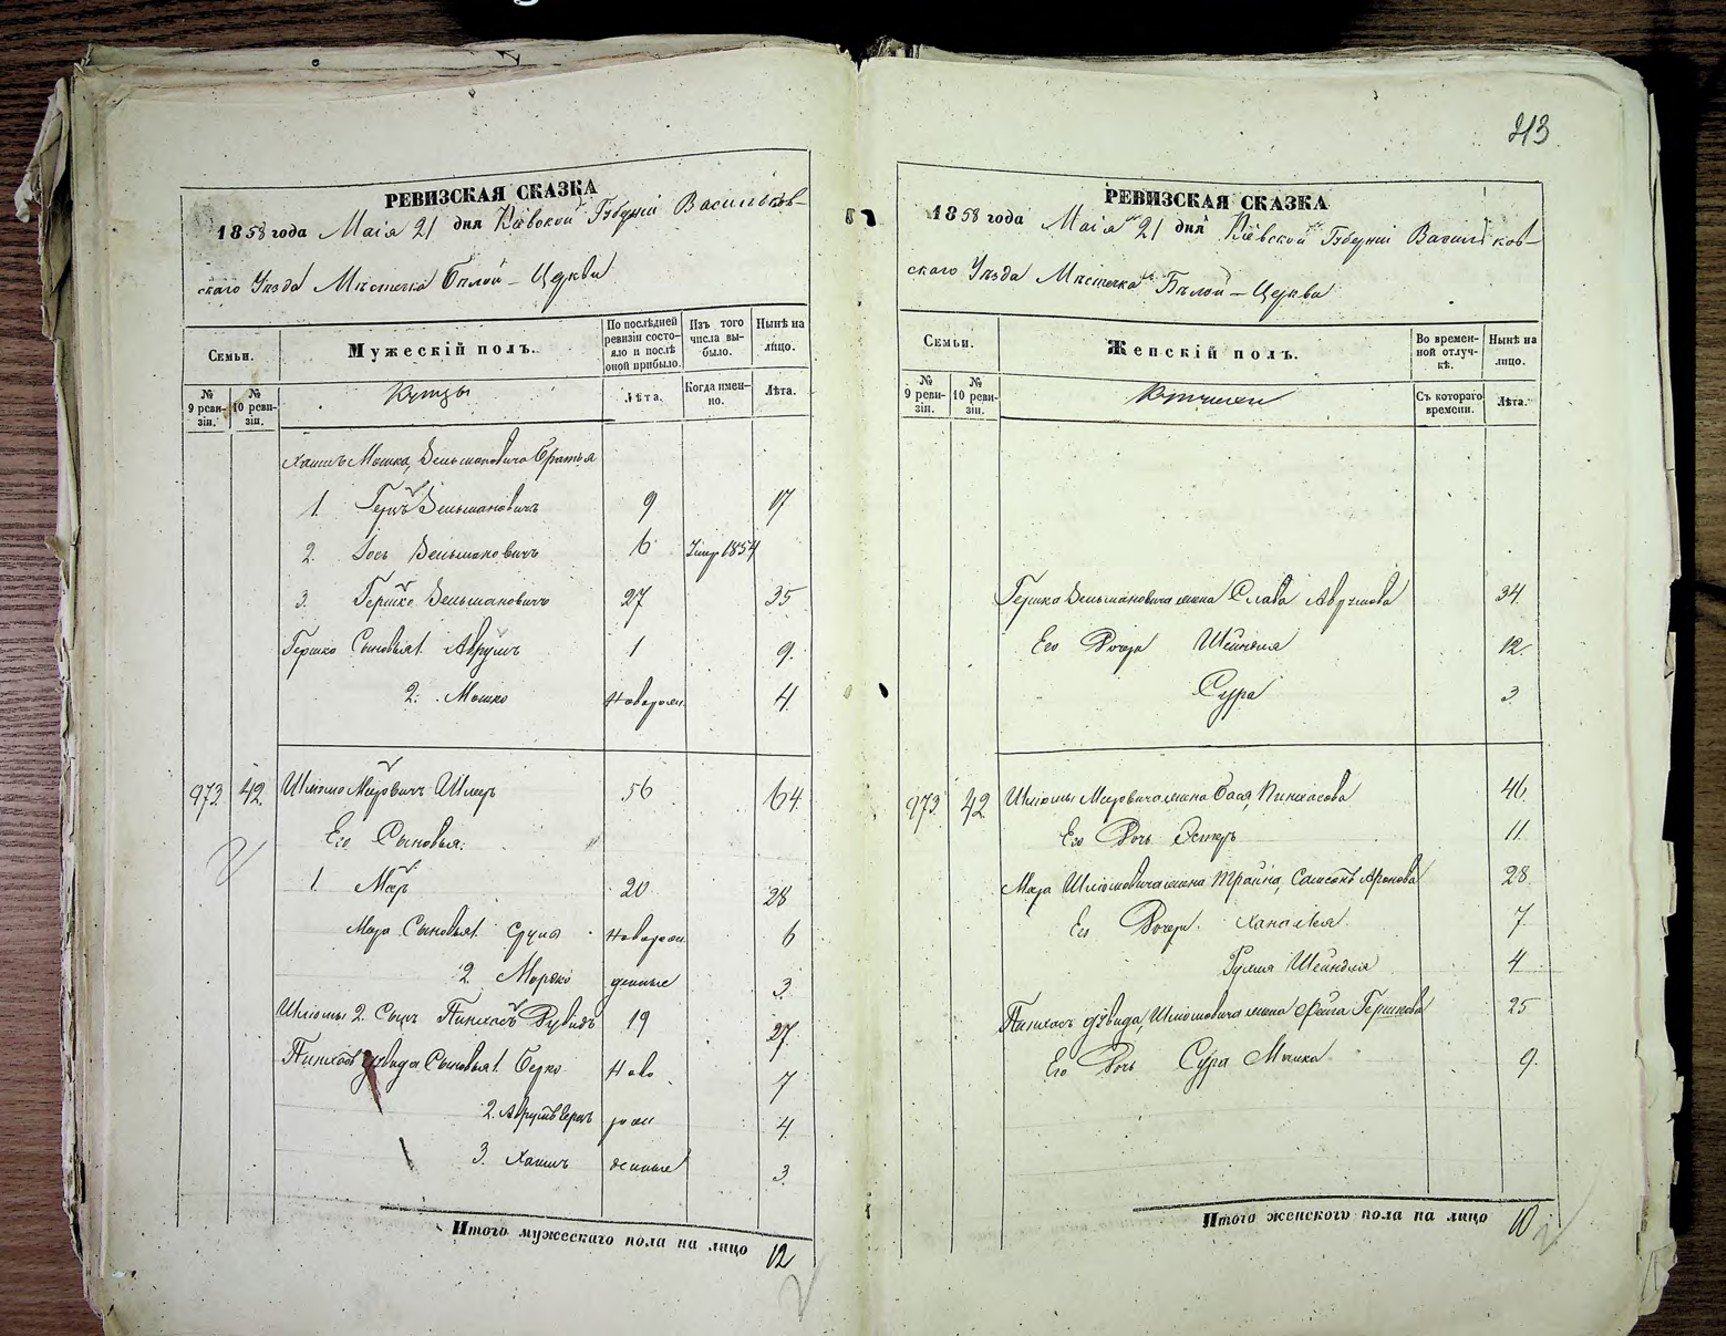 213
РЕВИЗСКАЯ СКАЗКА
1858 года Маія 21 дня Кіевской Губерніи Васильков-
скаго Уѣзда Мѣстечка Бѣлой-Церкви
Семьи.
Мужескій полъ.
По послѣдней ревизіи состояло и послѣ оной прибыло.
Изъ того числа выбыло.
Нынѣ на лицо.
№ 9 ревизіи.
№ 10 ревизіи.
Купцы
Лѣта.
Когда именно.
Лѣта.
Хаимъ Мошка Зельмановича Братья
1. Герцъ Зельмановичъ 9 17
2. Іось Зельмановичъ 6 Умер 1854
3. Гершко Зельмановичъ 27 35
Гершко Сыновья 1. Аврумъ 1 9.
2. Мошко Новорож 4.
973. 42. Шліомо Мееровичъ 56 64
Его Сыновья:
1. Меръ 20 28
Мера Сыновья 1. Новорож 6
2. денные 3.
Шліомы 2. Сынъ Пинхасъ Дувидъ 19 27.
Пинхасъ Дувида Сыновья 1. Берко Ново 7
2. Аврумъ Берлъ рож 4.
3. Хаимъ денные 3.
Итого мужескаго пола на лицо 12
РЕВИЗСКАЯ СКАЗКА
1858 года Маія 21 дня Кіевской Губерніи Васильков-
скаго Уѣзда Мѣстечка Бѣлой-Церкви
Семьи.
Женскій полъ.
Во временной отлучкѣ.
Нынѣ на лицо.
№ 9 ревизіи.
№ 10 ревизіи.
Купчихи
Съ котораго времени.
Лѣта.
Гершка Зельмановича жена Слава Аврумова 34.
Его Дочери Шейндля 12.
Сура 3
973. 42. Шліомы Мееровича жена Бася Пинхасова 46
Его Дочь Эстеръ 11.
Мера Шліомовича жена Трайна, Аронова 28
Его Дочери. Хана Лея 7.
Шейндля 4
Пинхасъ Дувида Шліомовича жена Фейга Гершкова 25
Его Дочь Сура Мошка 9.
Итого женскаго пола на лицо 10